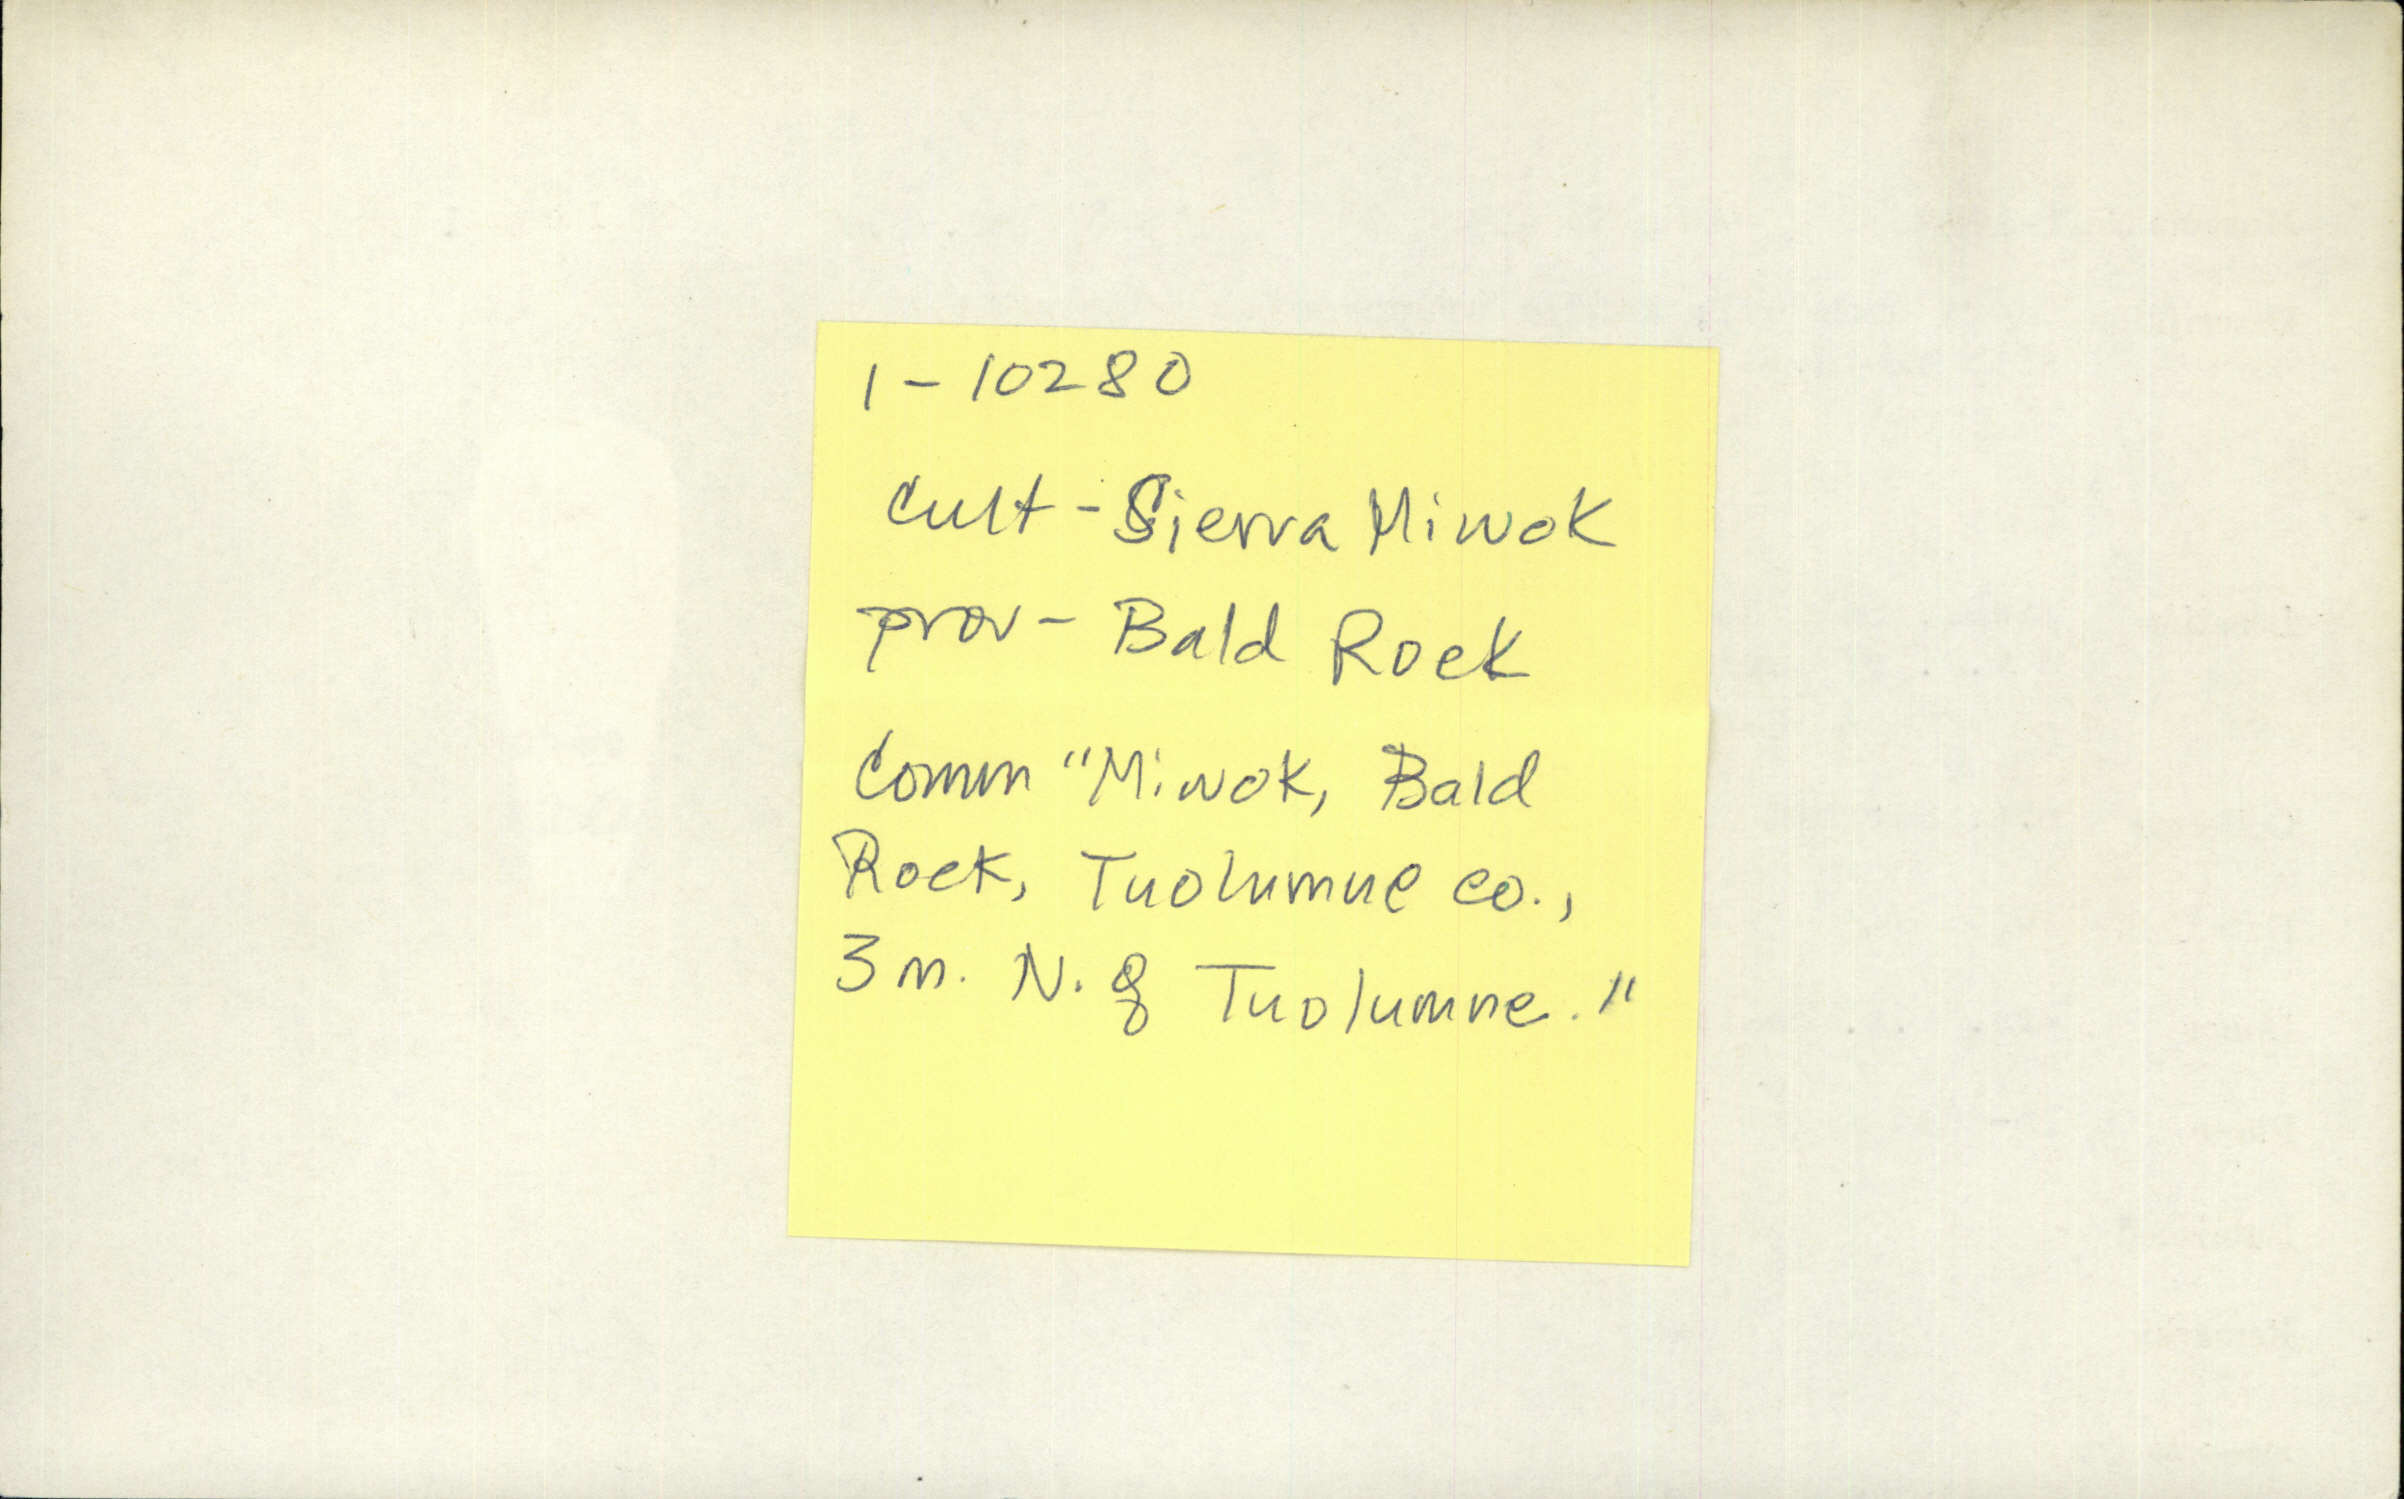 1-10280
Cult - Sierra Miwok
prov - Bald Rock
Comm "Miwok, Bald
Rock, Tuolumne co.,
3 m. N. of Tuolumne."